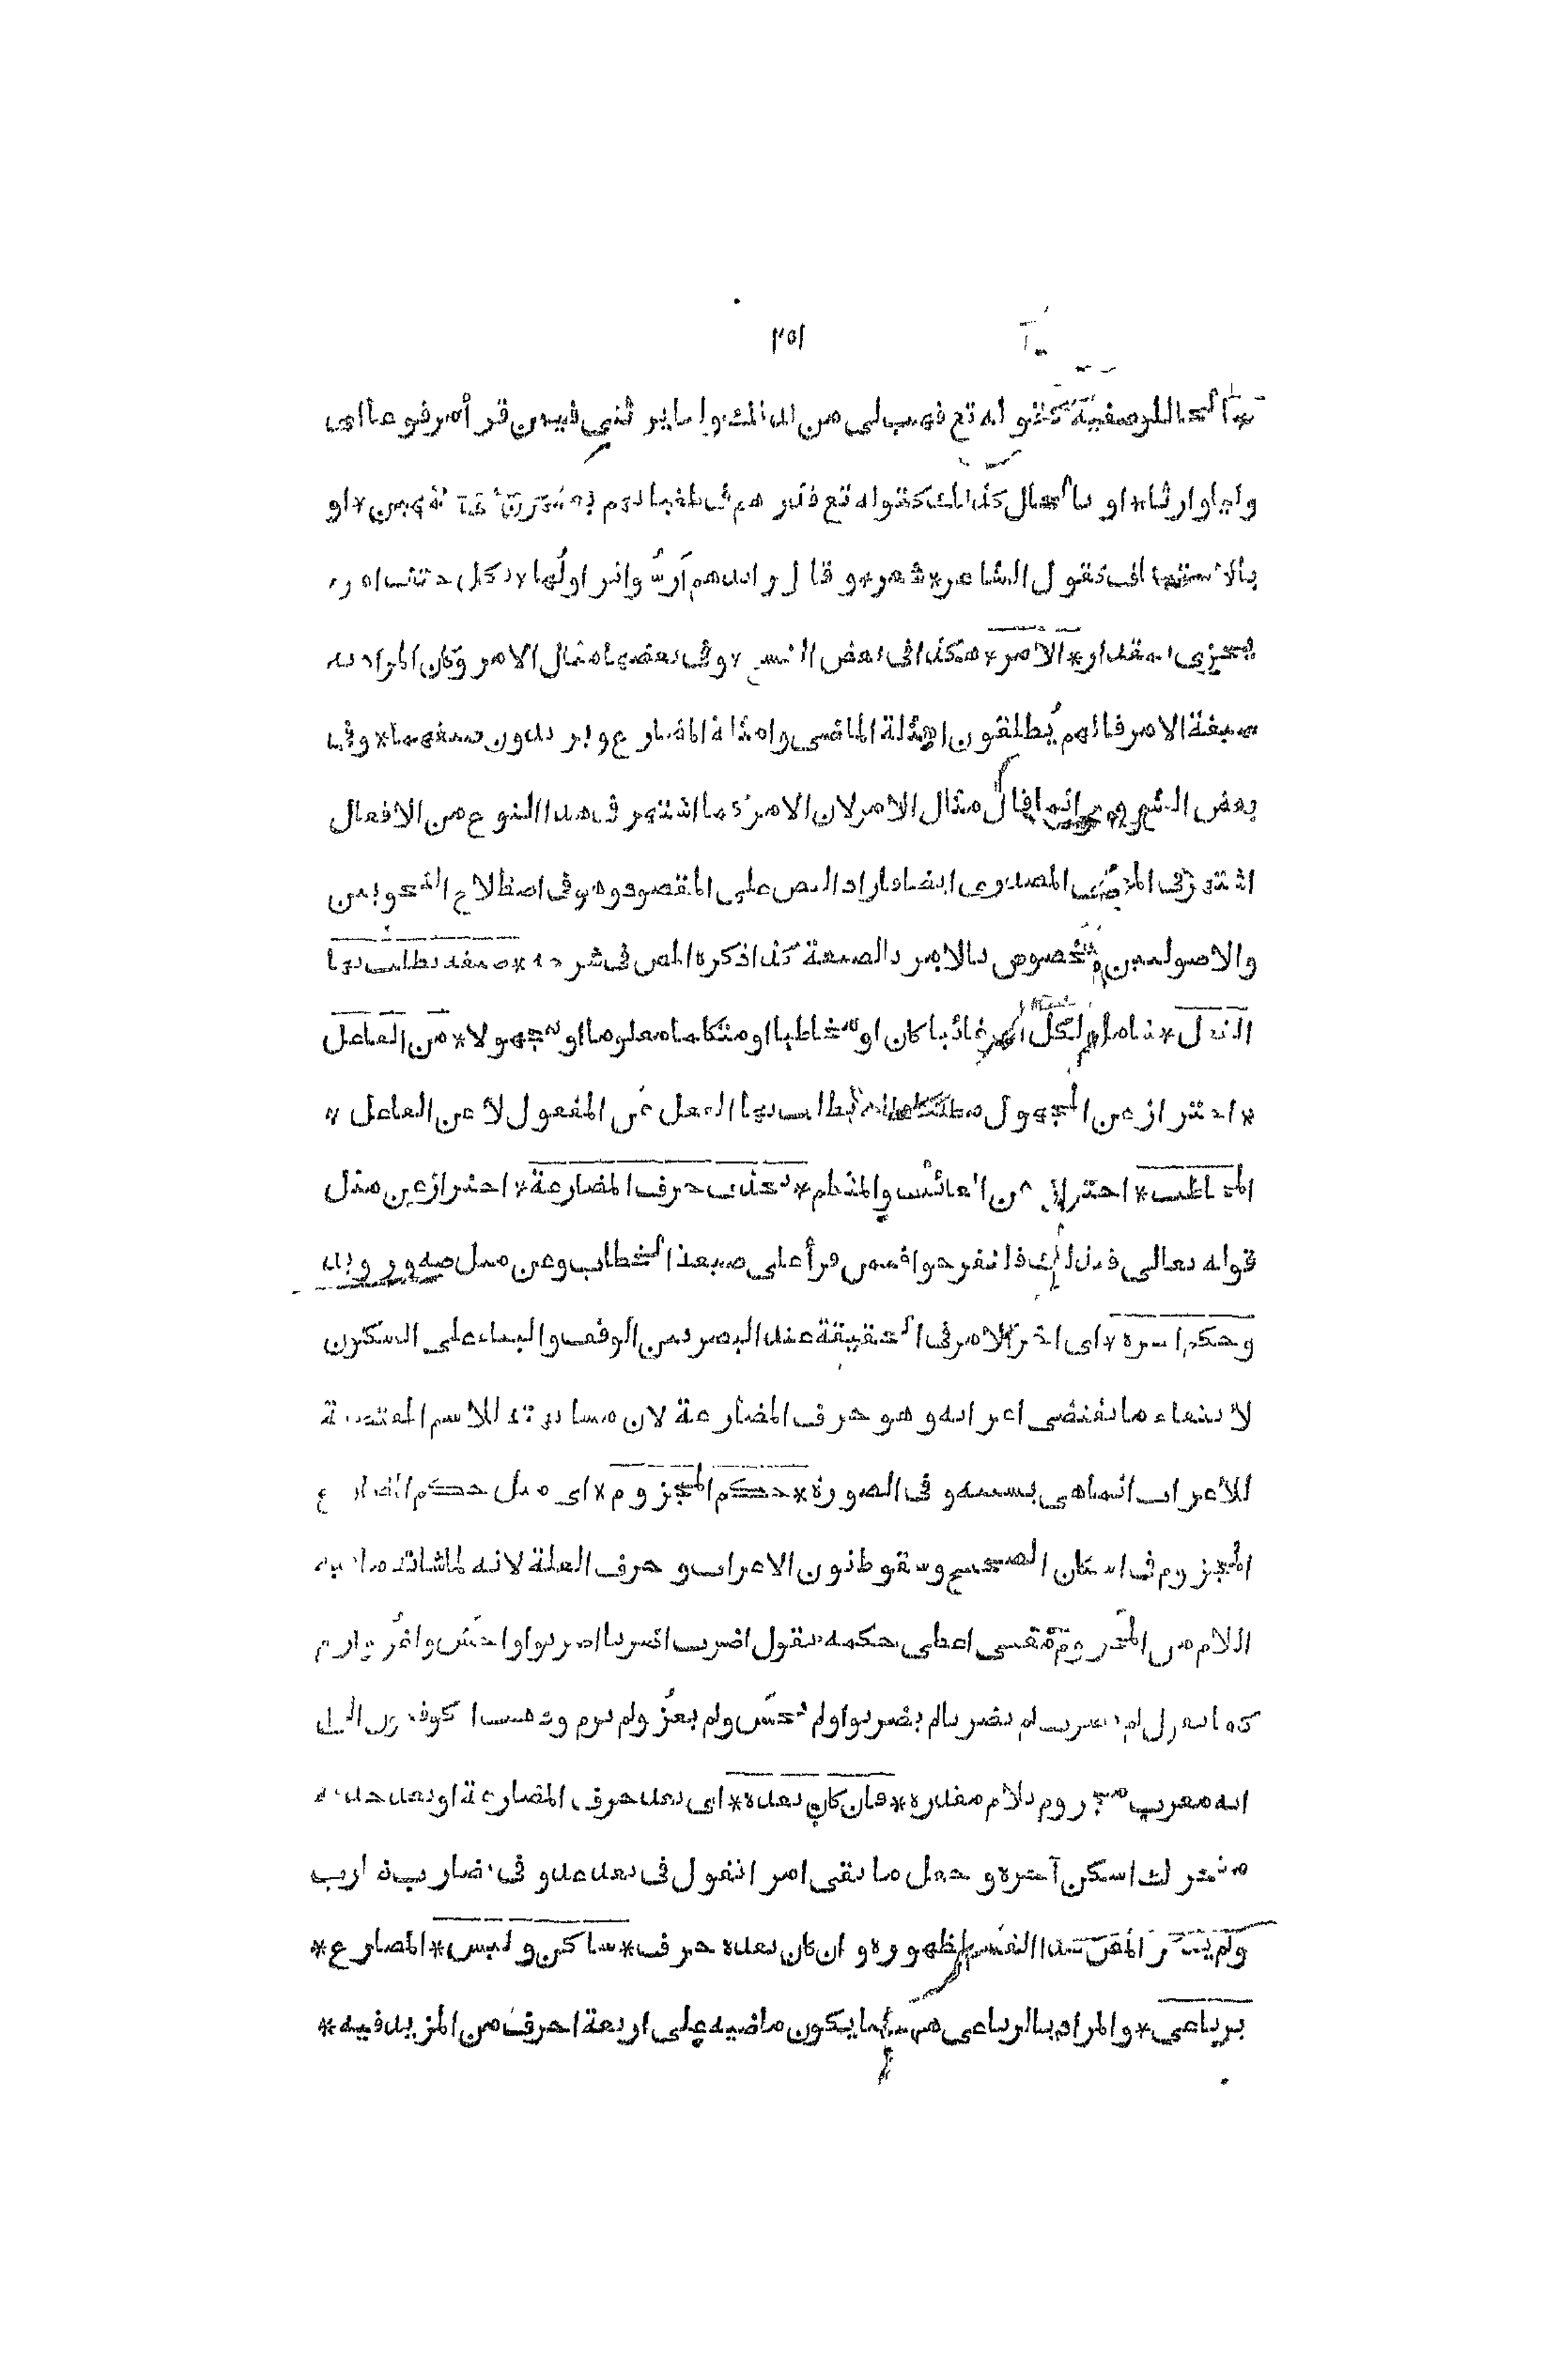 ٣٥١
كقوله تع فهب لي من لدنك وليا يرثني فيمن قرأ مرفوعا اي
وليا وارثا * او بالحال كذلك كقوله تع فذرهم في طغيانهم يعمهون * او
بالاستيناف كقول الشاعر * شعر * وقال رائدهم أرسوا نزاولها * فكل حتف امرء
يجري بمقدار * الامر * هكذا في بعض النسخ * وفي بعضها مثال الامر وكان المراد به
صيغة الامر فانهم يطلقون امثلة الماضي وامثلة المضارع ويريدون صيغهما * وفي
بعض الشروح انما قال مثال الامر لان الامر كما اشتهر في هذا النوع من الافعال
اشتهر في المعنى المصدري ايضا فاراد النص على المقصود وهو في اصطلاح النحويين
والاصوليين مخصوص بالامر بالصيغة كذا ذكره المص في شرحه * صيغة يطلب بها
الفعل * شامل لكل امر غائبا كان او مخاطبا او متكلما معلوما او مجهولا * من الفاعل
* احتراز عن المجهول مطلقا يطلب بها الفعل عن المفعول لا عن الفاعل *
المخاطب * احتراز عن الغائب والمتكلم * بحذف حرف المضارعة * احتراز عن مثل
قوله تعالى فبذلك فلتفرحوا فيمن قرأ على صيغة الخطاب وعن مثل صه ورويد
وحكم آخره * اي آخر الامر في الحقيقة عند البصريين الوقف والبناء على السكون
لانتفاء ما يقتضي اعرابه وهو حرف المضارعة لان مشابهته للاسم المقتضية
للاعراب انما هي بسببه وفي الصورة * حكم المجزوم * اي مثل حكم المضارع
المجزوم في اسكان الصحيح وسقوط نون الاعراب وحرف العلة لانه لما شابه ما فيه
اللام من المجزوم معنى اعطى حكمه تقول اضرب اضربا اضربوا واخش واغز وارم
كما تقول لم يضرب لم يضربا لم يضربوا ولم يخش ولم يغز ولم يرم وذهب الكوفيون الى
انه معرب مجزوم بلام مقدرة * فان كان بعده * اي بعد حرف المضارعة او بعد حذفه
متحرك اسكن آخره وجعل ما بقي امرا تقول في تعد عد وفي تضارب ضارب
ولم يذكر المص هذا القسم لظهوره وان كان بعده حرف * ساكن وليس * المضارع *
برباعي * والمراد بالرباعي ههنا ما يكون ماضيه على اربعة احرف من المزيد فيه *